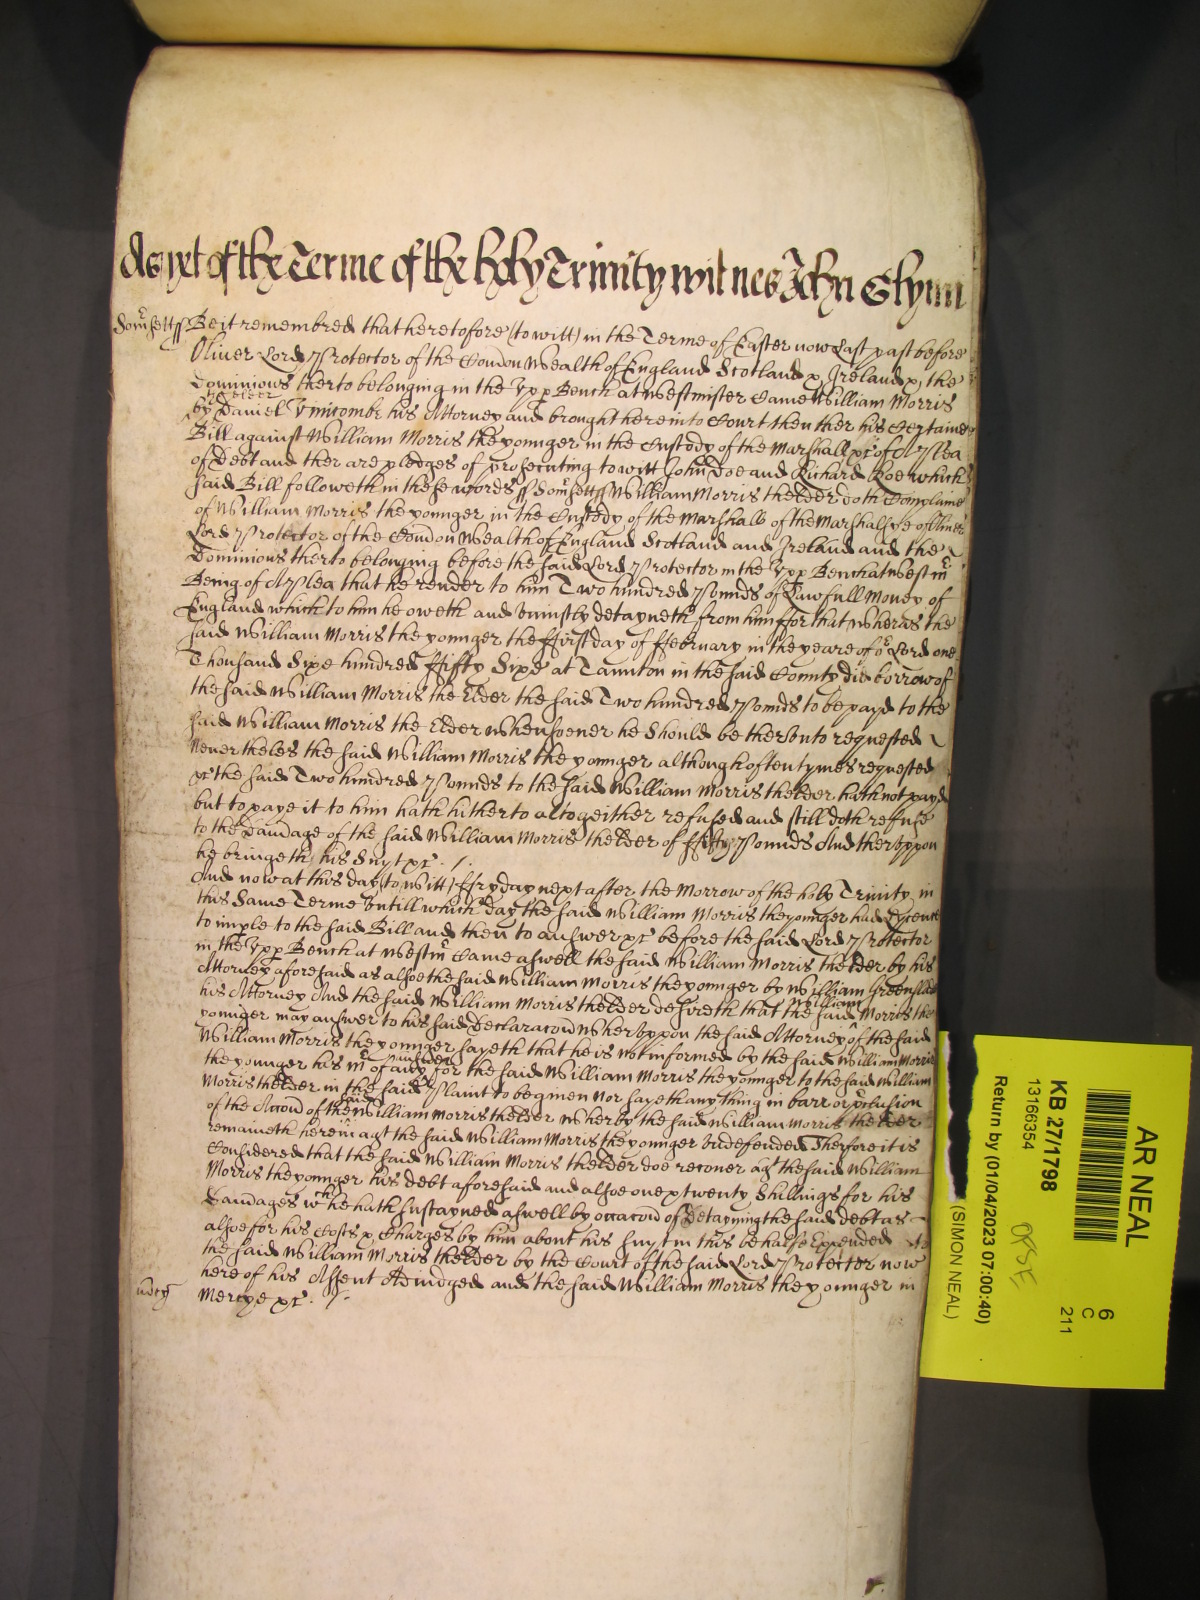 As yet of the Terme of the holy Trinity witnes John Glynn
Som̃sett ss Be it remembred that heretofore (to witt) in the Terme of Easter now Last past before
Oliver Lord Protector of the Comon Wealth of England Scotland & Ireland & the
Dominions therto belonging in the Upp Bench at Westmister Came William Morris
the elder
by Daniel Vmicombe his Attorney and brought here into Court then ther his Certaine
Bill against William Morris the younger in the Custody of the Marshall &c of A Plea
of Debt and ther are pledges of prosecuting to witt John Doe and Richard Roe which
said Bill followeth in these words ss Som̃sett ss William Morris thelder doth Complaine
of William Morris the younger in the Custody of the Marshall of the Marshalsye of Oliver
Lord Protector of the Comon Wealth of England Scotland and Ireland and the
Dominions therto belonging before the said Lord Protector in the Upp Bench at Westm̃
Being of A Plea that he render to him Two hundred Pounds of Lawfull Money of
England which to him he oweth and uniustly detayneth from him ffor that wheras the
said William Morris the younger the ffirst day of ffebruary in the yeare of or Lord one
Thousand Sixe hundred ffifty Sixe at Taunton in the said County did borrow of
the said William Morris the Elder the said Two hundred Pounds to be payd to the
said William Morris the Elder whensoever he should be therunto requested
Nevertheles the said William Morris the younger although often tymes requested
&c the said Two hundred Pounds to the said William Morris thelder hath not payd
but to paye it to him hath hitherto altogeither refused and still doth refuse
to the Damage of the said William Morris thelder of ffifty Pounds And thervppon
he bringeth his suyt &c /.
And now at this day (to witt) ffryday next after the Morrow of the holy Trinity in
this same Terme Untill which day the said William Morris the younger had Lycence
to imple to the said Bill and then to answer &c before the said Lord Protector
in the Upp Bench at Westm̃ Came aswell the said William Morris thelder by his
Attorney aforesaid as alsoe the said William Morris the younger by William
his Attorney And the said William Morris thelder desireth that the said William Morris the
younger may answer to his said Declaracon Whervppon the said Attorney of the said
William Morris the younger sayeth that he is not informed by the said William Morris
the younger his mr of any answer for the said William Morris the younger to the said William
Morris thelder in the said Plaint to be given nor sayeth any thing in barr or p̲clusion
of the Accon of the said William Morris thelder wherby the said William Morris thelder
remaineth herein agt the said William Morris the younger vndefended Therfore it is
Considered that the said William Morris thelder doe recover agt the said William
Morris the younger his debt aforesaid and alsoe one & twenty Shillings for his
Damages wch he hath sustayned aswell by occacon of Detayning the said debt as
alsoe for his Costs & Charges by him about his suyt in this behalfe Expended to
the said William Morris thelder by the Court of the said Lord Protector now
here of his Assent Adiudged and the said William Morris the younger in
mercy Mercye &c /.
AR NEAL
6
C
211
KB 27/1798
13166354
Return by (01/04/2023 07:00:40)
(SIMON NEAL)